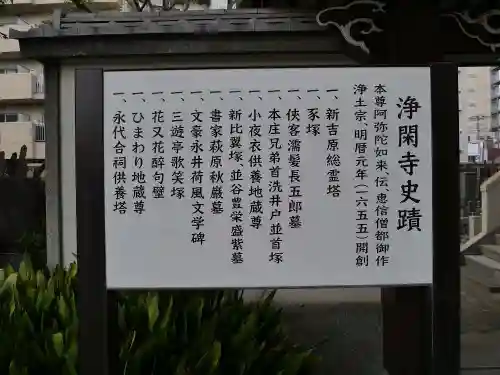 浄閑寺史蹟
本尊阿弥陀如来、伝、恵信僧都御作
浄土宗、明暦元年(一六五五)開創
一、新吉原総霊塔
一、豕塚
一、侠客濡髪長五郎墓
一、本庄兄弟首洗井戸並首塚
一、小夜衣供養地蔵尊
一、新比翼塚、並谷豊栄盛紫墓
一、書家萩原秋巌墓
一、文豪永井荷風文学碑
一、三遊亭歌笑塚
一、花又花酔句壁
一、ひまわり地蔵尊
一、永代合祠供養塔